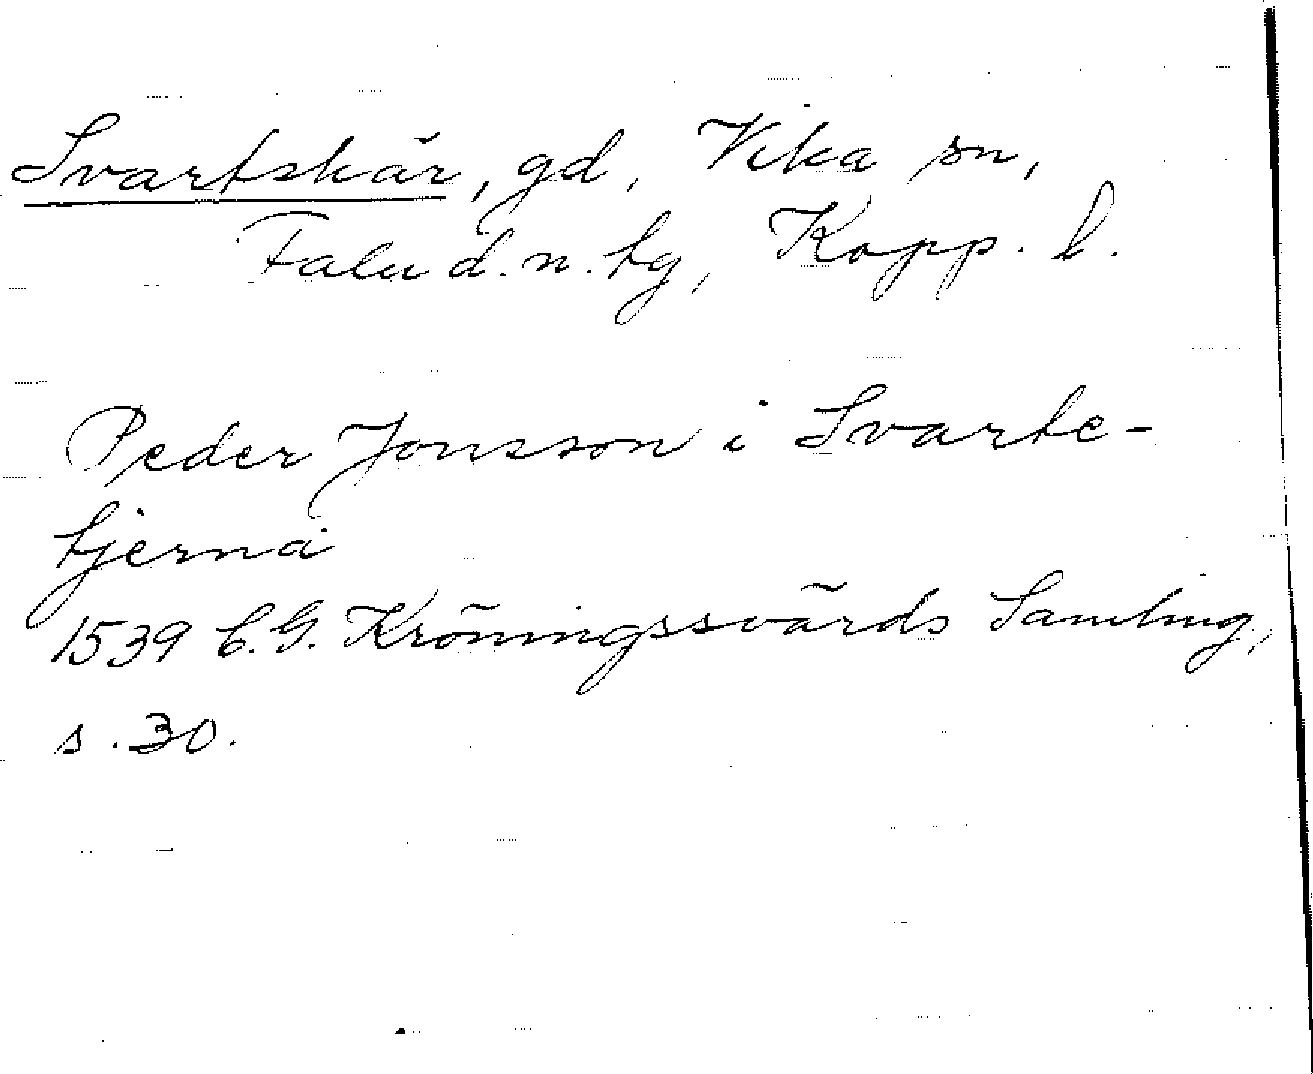 Svartskär, gd, Vika sn,
Falu d. n. tg, Kopp. l.
Peder Jonsson i Svarte-
tjerna
1539 C. G. Kröningssvärds Samling,
s. 30.